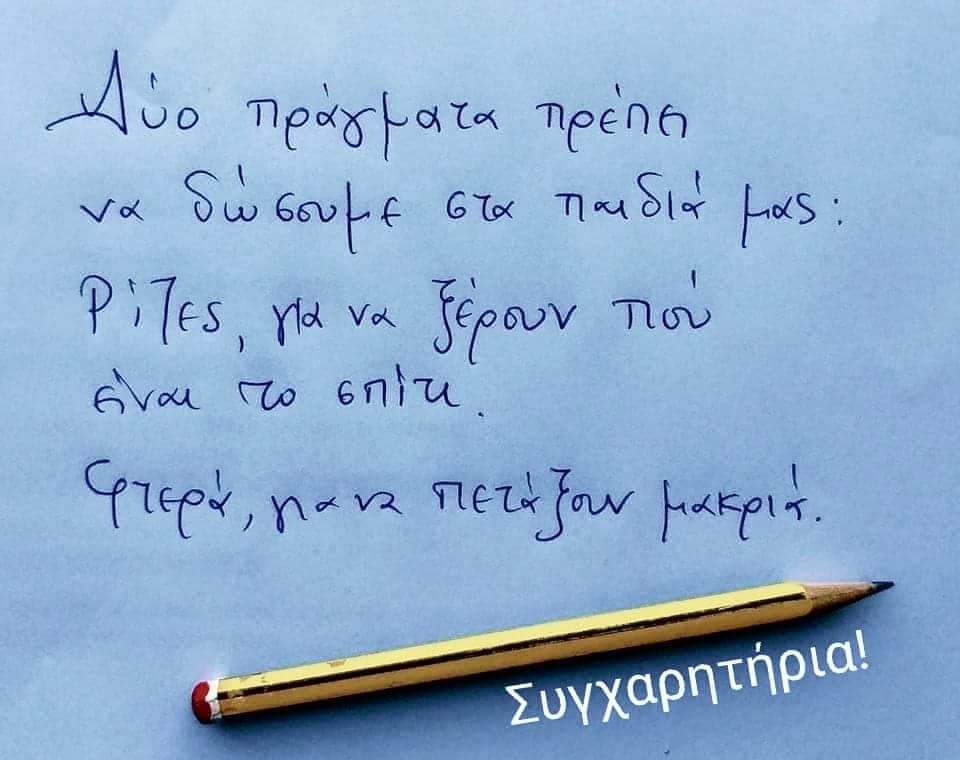 Δύο πράγματα πρέπει
να δώσουμε στα παιδιά μας:
Ρίζες, για να ξέρουν πού
είναι το σπίτι.
Φτερά, για να πετάξουν μακριά.
Συγχαρητήρια!